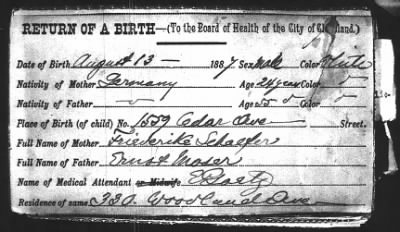 RETURN OF A BIRTH—(To the Board of Health of the City of Cleveland.)
Date of Birth August 13 — 1887 Sex Male Color White
Nativity of Mother Germany Age 24 years Color
Nativity of Father Age Color
Place of Birth (of child) No. 1559 Cedar Ave Street.
Full Name of Mother Friederike Schaefer
Full Name of Father Ernst Moser
Name of Medical Attendant or Midwife
Residence of same 330. Woodland Ave